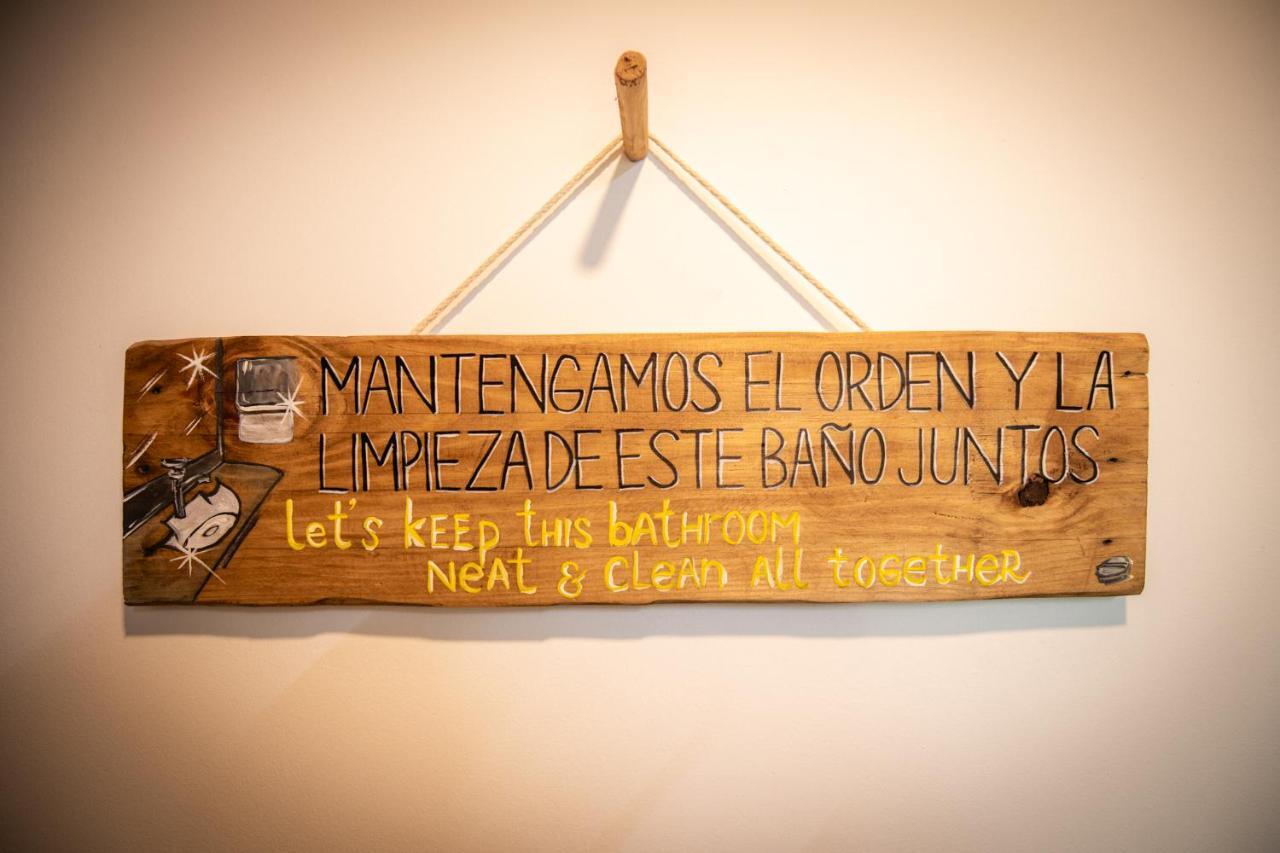 MANTENGAMOS EL ORDEN Y LA
LIMPIEZA DE ESTE BAÑO JUNTOS
Let's KEEP this bathrooM
Neat & Clean All together